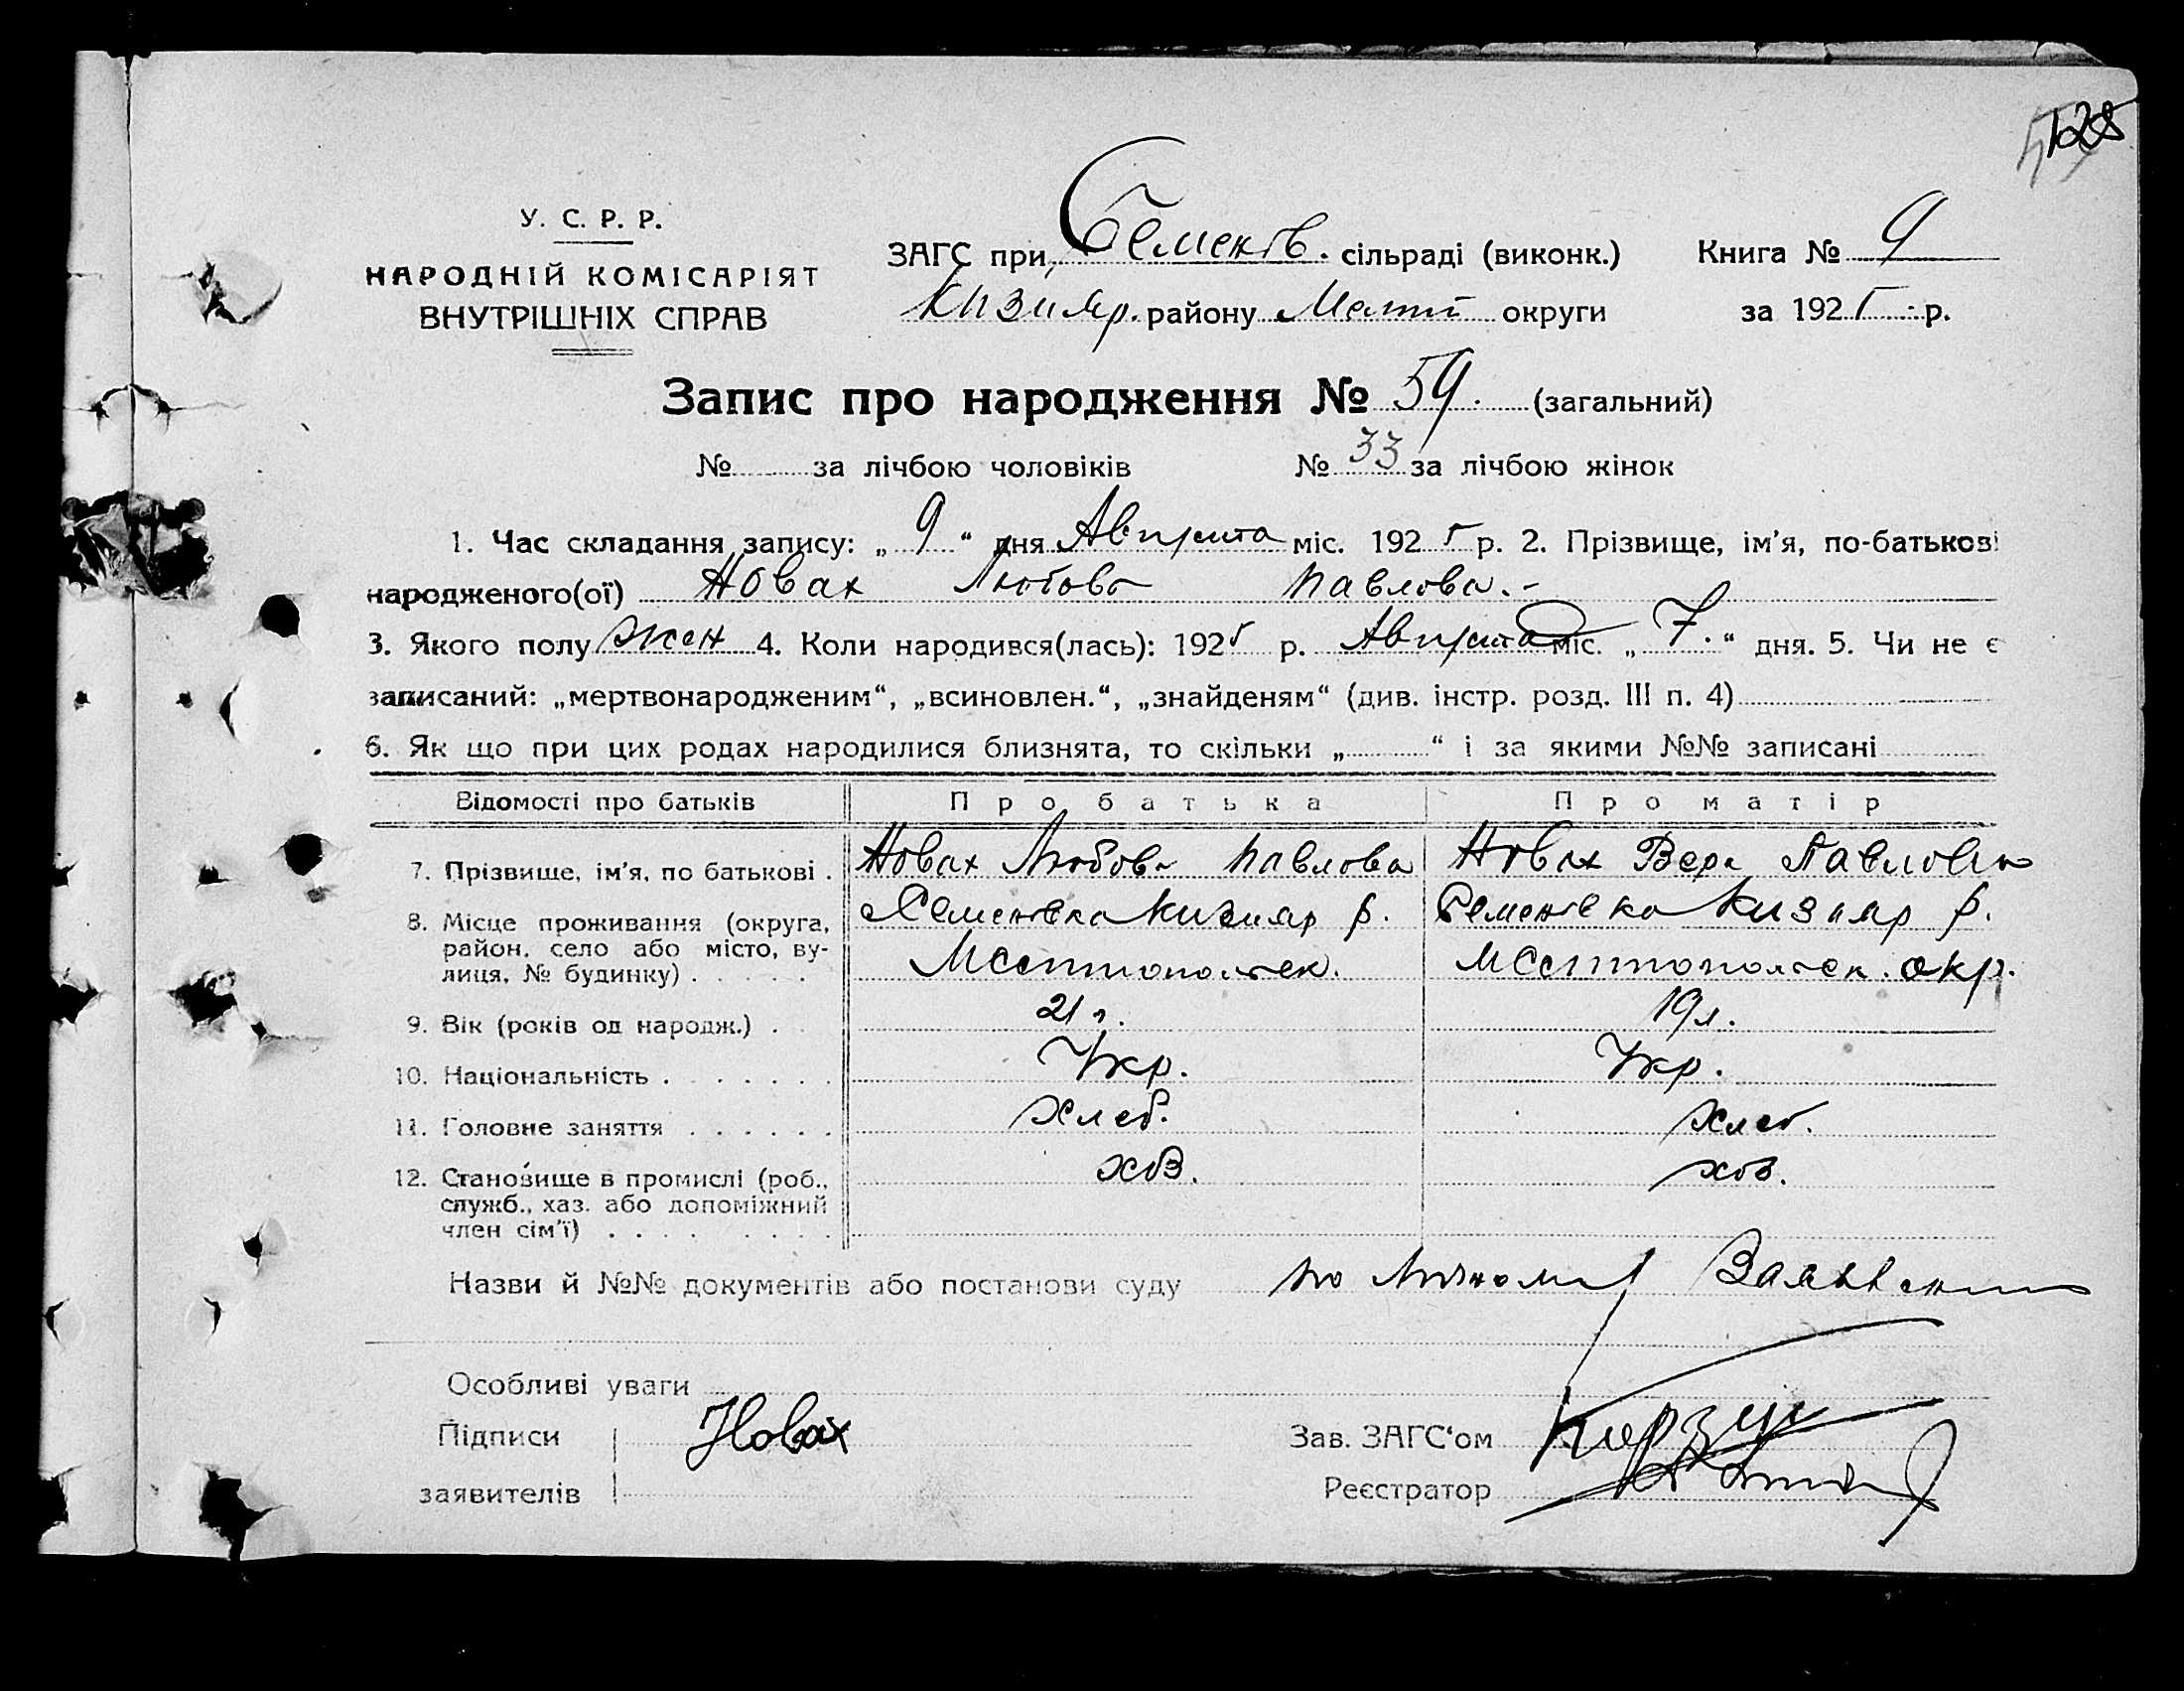 128
У. С. Р. Р.
НАРОДНІЙ КОМІСАРІЯТ
ВНУТРІШНІХ СПРАВ
ЗАГС при Семенів. сільраді (виконк.) Книга № 9
Кизияр. району Меліт округи за 1925 р.
Запис про народження № 59. (загальний)
№ за лічбою чоловіків № 33 за лічбою жінок
1. Час складання запису: „ 9 “ дня Августа міс. 1925 р. 2. Прізвище, ім'я, по-батькові
народженого(ої) Новах Любовь Павлова.-
3. Якого полу жен 4. Коли народився(лась): 1925 р. Августа міс. „ 7. “ дня. 5. Чи не є
записаний: „мертвонародженим“, „всиновлен.“, „знайденям“ (див. інстр. розд. III п. 4)
6. Як що при цих родах народилися близнята, то скільки „ “ і за якими №№ записані
Відомості про батьків Про батька Про матір
7. Прізвище, ім'я, по батькові . Новах Любовь Павлова Новах Вера Павловна
8. Місце проживання (округа, район, село або місто, вулиця, № будинку) . . . . .
Семеновка Кизияр р. Семеновка Кизияр р.
Мелитопольск. Мелитопольск. окр.
9. Вік (років од народж.) . 21 г. 19 л.
10. Національність . . . . . . . Укр. Укр.
11. Головне заняття . . . . . . Хлеб. Хлеб.
12. Становище в промислі (роб., служб., хаз. або допоміжний член сім'ї) . . . . . . . .
хоз. хоз.
Назви й №№ документів або постанови суду по
Особливі уваги
Підписи Новах Зав. ЗАГС'ом
заявителів Реєстратор